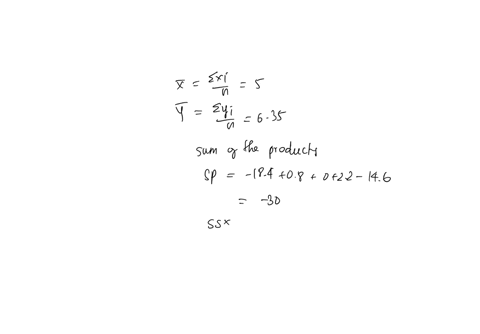 x̄ = Σxi/n = 5
Ȳ = Σyi/n = 6.35
sum of the products
SP = -18.4 + 0.8 + 0 + 2.2 - 14.6
= -30
SSx